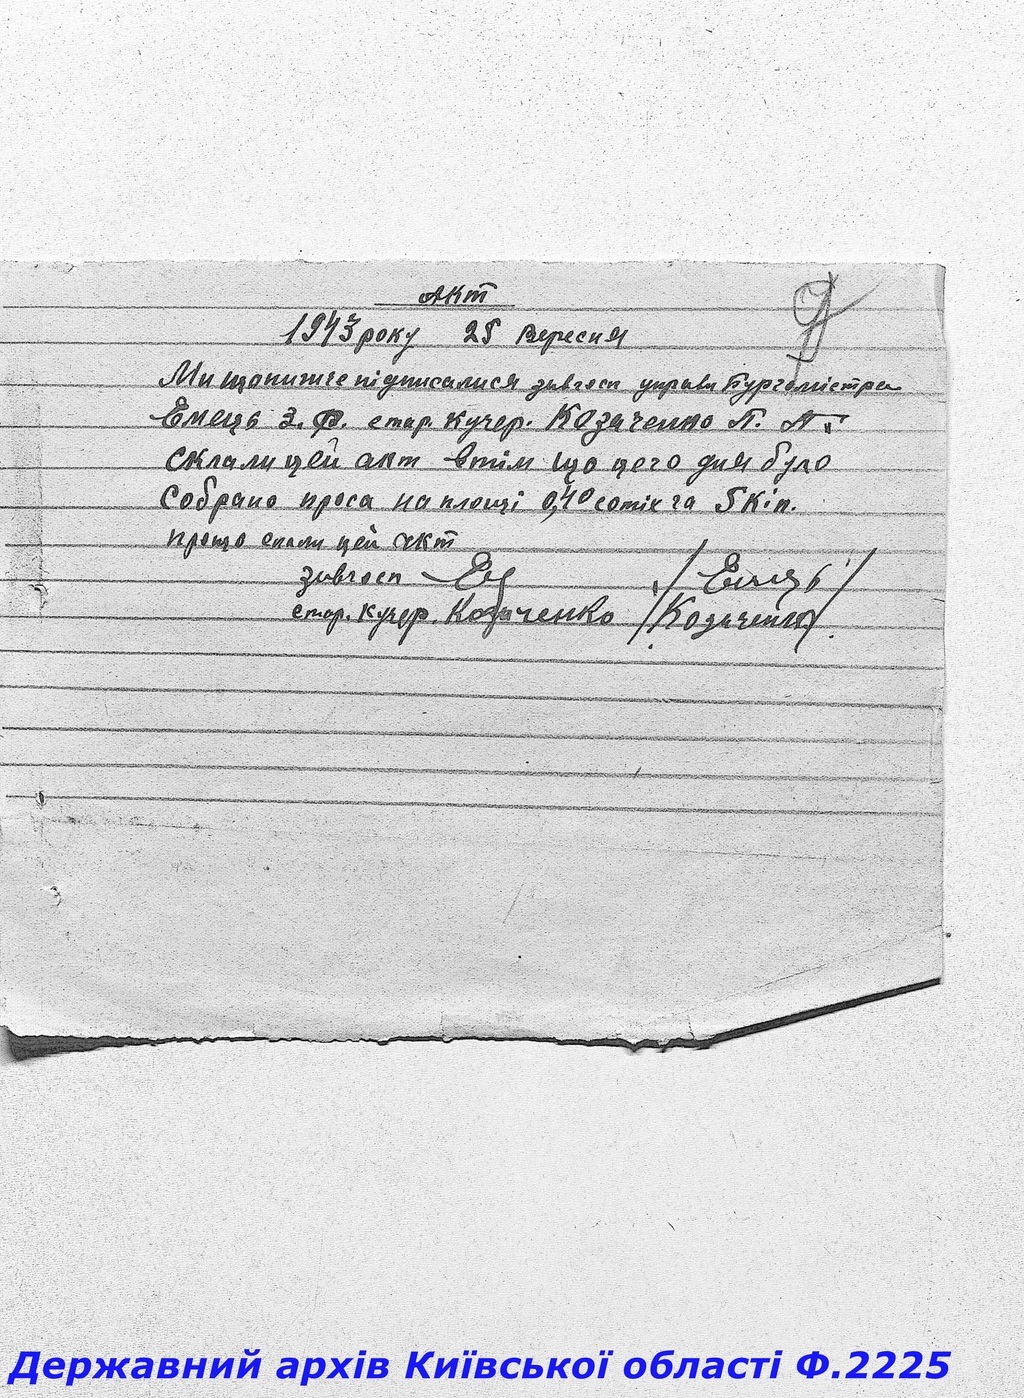 Акт
1943 року 25 Вересня
Ми щонижче підписалися завгосп управи Бургомістра
Емець З. Ф. стар. Кучер. Козаченко П. А.
склали цей акт втім що цего дня було
Собрано проса на площі 0,40 сотих га 5 кіп.
прощо склали цей акт
завгосп Ец /Емець/
стар. Кучер. Козаченко /Козаченко/
Державний архів Київської області Ф.2225